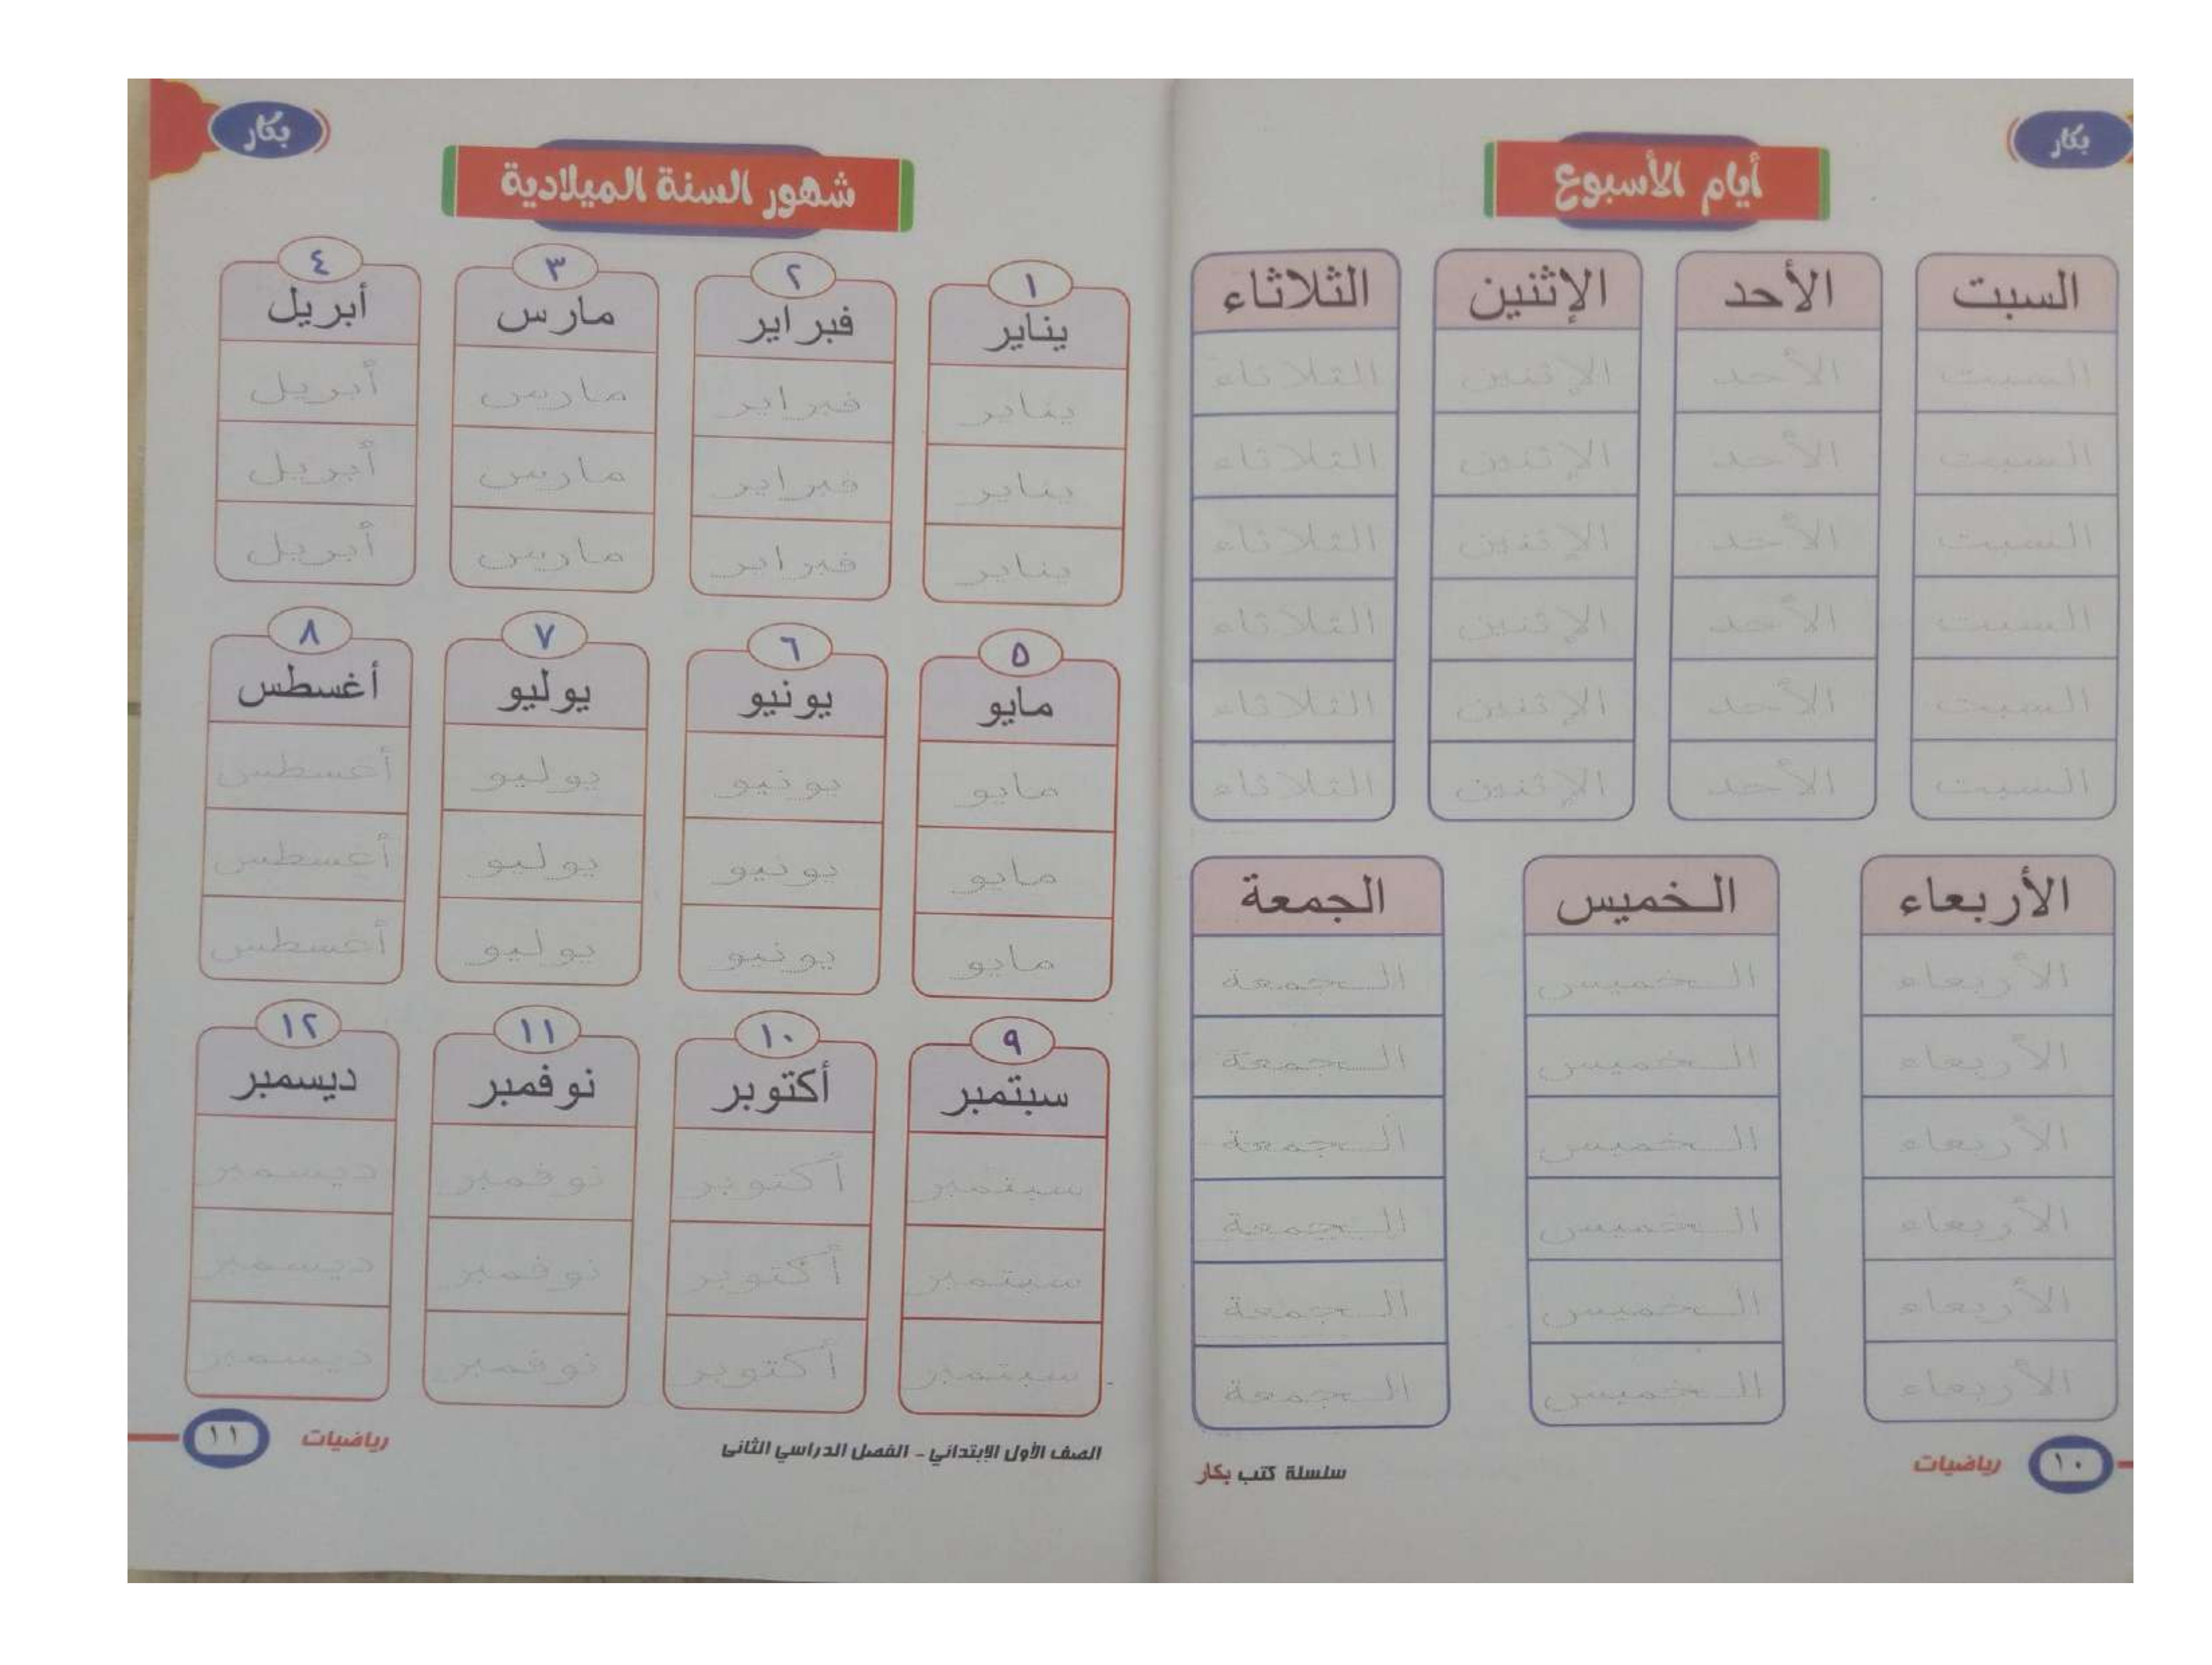 بكار
أيام الأسبوع
السبت الأحد الإثنين الثلاثاء
السبت الأحد الإثنين الثلاثاء
السبت الأحد الإثنين الثلاثاء
السبت الأحد الإثنين الثلاثاء
السبت الأحد الإثنين الثلاثاء
السبت الأحد الإثنين الثلاثاء
السبت الأحد الإثنين الثلاثاء
الأربعاء الخميس الجمعة
الأربعاء الخميس الجمعة
الأربعاء الخميس الجمعة
الأربعاء الخميس الجمعة
الأربعاء الخميس الجمعة
الأربعاء الخميس الجمعة
الأربعاء الخميس الجمعة
١٠ رياضيات
سلسلة كتب بكار
بكار
شهور السنة الميلادية
١ ٢ ٣ ٤
يناير فبراير مارس أبريل
يناير فبراير مارس أبريل
يناير فبراير مارس أبريل
يناير فبراير مارس أبريل
٥ ٦ ٧ ٨
مايو يونيو يوليو أغسطس
مايو يونيو يوليو أغسطس
مايو يونيو يوليو أغسطس
مايو يونيو يوليو أغسطس
٩ ١٠ ١١ ١٢
سبتمبر أكتوبر نوفمبر ديسمبر
سبتمبر أكتوبر نوفمبر ديسمبر
سبتمبر أكتوبر نوفمبر ديسمبر
سبتمبر أكتوبر نوفمبر ديسمبر
الصف الأول الإبتدائي - الفصل الدراسي الثانى
رياضيات ١١